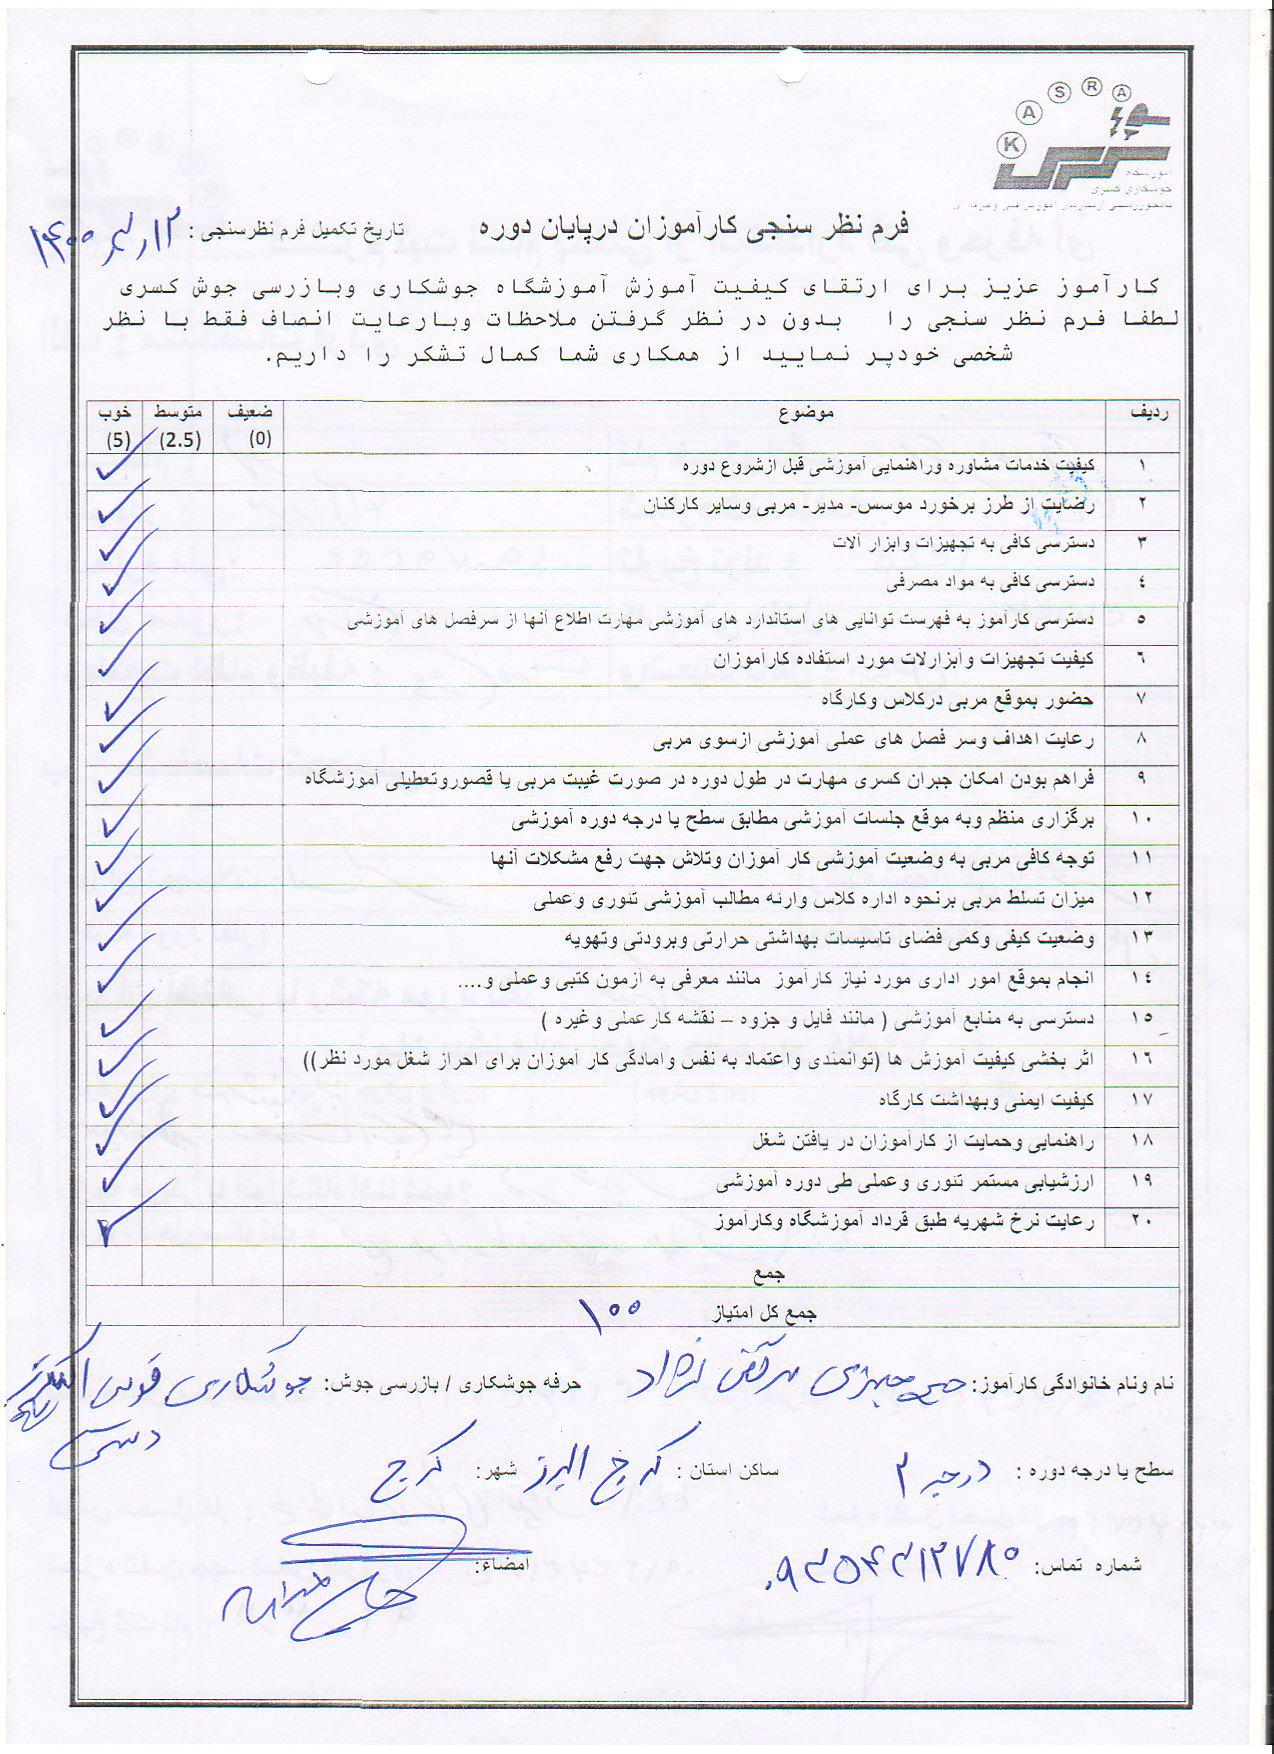 K A S R A
آموزشگاه
جوشکاری کسری
فرم نظر سنجی کارآموزان درپایان دوره تاریخ تکمیل فرم نظرسنجی :
کارآموز عزیز برای ارتقای کیفیت آموزش آموزشگاه جوشکاری وبازرسی جوش کسری
لطفا فرم نظر سنجی را بدون در نظر گرفتن ملاحظات وبارعایت انصاف فقط با نظر
شخصی خودپر نمایید از همکاری شما کمال تشکر را داریم.
ردیف موضوع ضعیف (0) متوسط (2.5) خوب (5)
۱ کیفیت خدمات مشاوره وراهنمایی آموزشی قبل ازشروع دوره ✓
۲ رضایت از طرز برخورد موسس- مدیر- مربی وسایر کارکنان ✓
۳ دسترسی کافی به تجهیزات وابزار آلات ✓
٤ دسترسی کافی به مواد مصرفی ✓
٥ دسترسی کارآموز به فهرست توانایی های استاندارد های آموزشی مهارت اطلاع آنها از سرفصل های آموزشی ✓
٦ کیفیت تجهیزات وآبزارلات مورد استفاده کارآموزان ✓
۷ حضور بموقع مربی درکلاس وکارگاه ✓
۸ رعایت اهداف وسر فصل های عملی آموزشی ازسوی مربی ✓
۹ فراهم بودن امکان جبران کسری مهارت در طول دوره در صورت غیبت مربی یا قصوروتعطیلی آموزشگاه ✓
۱۰ برگزاری منظم وبه موقع جلسات آموزشی مطابق سطح یا درجه دوره آموزشی ✓
۱۱ توجه کافی مربی به وضعیت آموزشی کار آموزان وتلاش جهت رفع مشکلات آنها ✓
۱۲ میزان تسلط مربی برنحوه اداره کلاس وارئه مطالب آموزشی تئوری وعملی ✓
۱۳ وضعیت کیفی وکمی فضای تاسیسات بهداشتی حرارتی وبرودتی وتهویه ✓
۱٤ انجام بموقع امور اداری مورد نیاز کارآموز مانند معرفی به آزمون کتبی وعملی و.... ✓
۱٥ دسترسی به منابع آموزشی ( مانند فایل و جزوه – نقشه کارعملی وغیره ) ✓
۱٦ اثر بخشی کیفیت آموزش ها (توانمندی واعتماد به نفس وامادگی کار آموزان برای احراز شغل مورد نظر)) ✓
۱۷ کیفیت ایمنی وبهداشت کارگاه ✓
۱۸ راهنمایی وحمایت از کارآموزان در یافتن شغل ✓
۱۹ ارزشیابی مستمر تئوری وعملی طی دوره آموزشی ✓
۲۰ رعایت نرخ شهریه طبق قرداد آموزشگاه وکارآموز ✓
جمع
جمع کل امتیاز ۱۰۰
نام ونام خانوادگی کارآموز: نژاد حرفه جوشکاری / بازرسی جوش: جوشکاری قوس
دستی
سطح یا درجه دوره : درجه ۲ ساکن استان : کرج البرز شهر: کرج
شماره تماس: امضاء: